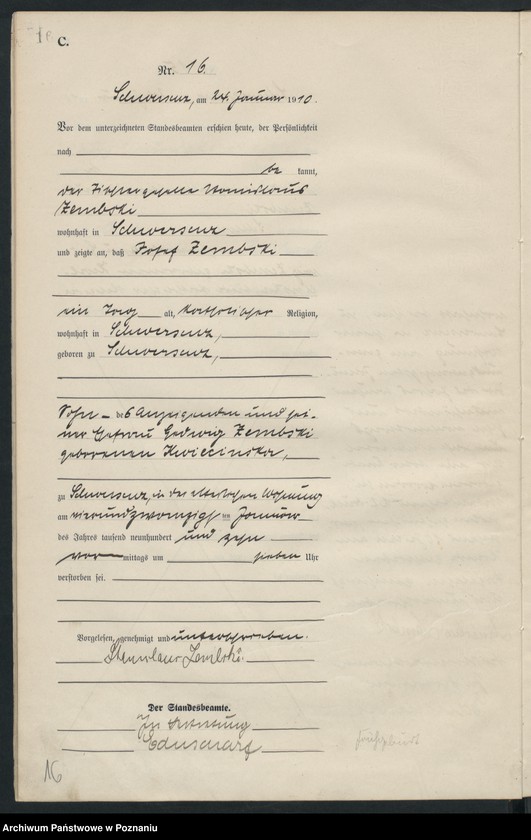 C.
Nr. 16.
Schwersenz, am 24. Januar 1910.
Vor dem unterzeichneten Standesbeamten erschien heute, der Persönlichkeit
nach
be kannt,
der Tischlergeselle Stanislaus
Zembski
wohnhaft in Schwersenz
und zeigte an, daß Josef Zembski
ein Tag alt, katholischer Religion,
wohnhaft in Schwersenz,
geboren zu Schwersenz,
Sohn des Anzeigenden und sei-
ner Ehefrau Hedwig Zembski
geborenen Kwiecinska,
zu Schwersenz, in der elterlichen Wohnung
am vierundzwanzigsten Januar
des Jahres tausend neunhundert und zehn
vor mittags um sieben Uhr
verstorben sei.
Vorgelesen, genehmigt und unterschrieben.
Stanislaus Zembski.
Der Standesbeamte.
In Vertretung
16
Archiwum Państwowe w Poznaniu